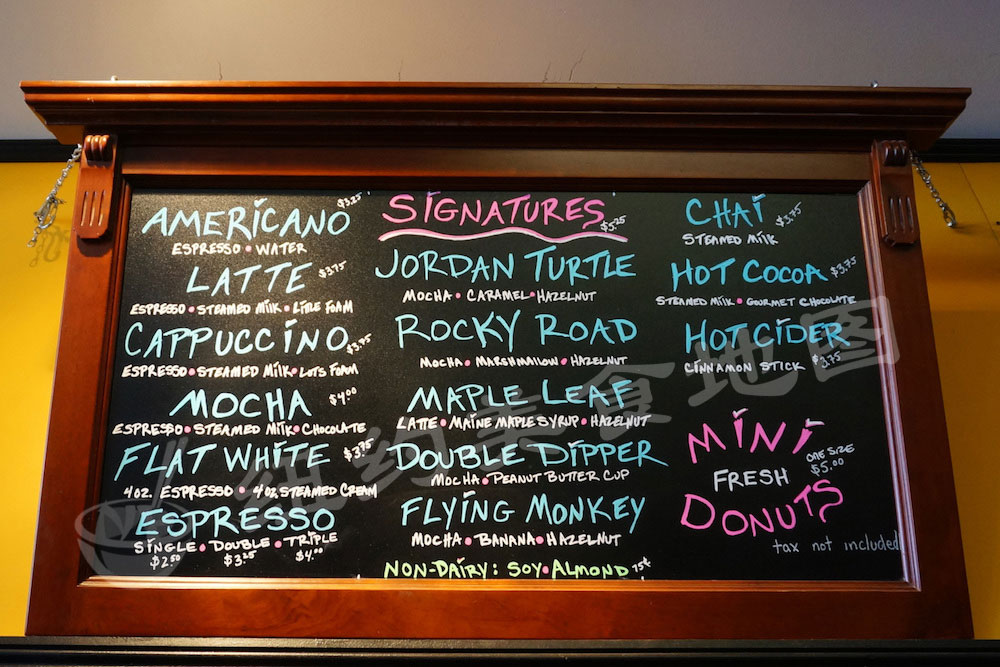 AMERICANO $3.25
ESPRESSO • WATER
LATTE $3.75
ESPRESSO • STEAMED MILK • LITTLE FOAM
CAPPUCCINO $3.75
ESPRESSO • STEAMED MILK • LOTS FOAM
MOCHA $4.00
ESPRESSO • STEAMED MILK • CHOCOLATE
FLAT WHITE $3.75
4OZ. ESPRESSO • 4OZ. STEAMED CREAM
ESPRESSO
SINGLE • DOUBLE • TRIPLE
$2.50 $3.25 $4.00
SIGNATURES $5.25
JORDAN TURTLE
MOCHA • CARAMEL • HAZELNUT
ROCKY ROAD
MOCHA • MARSHMALLOW • HAZELNUT
MAPLE LEAF
LATTE • MAINE MAPLE SYRUP • HAZELNUT
DOUBLE DIPPER
MOCHA • PEANUT BUTTER CUP
FLYING MONKEY
MOCHA • BANANA • HAZELNUT
NON-DAIRY: SOY • ALMOND 75¢
CHAI $3.75
STEAMED MILK
HOT COCOA $3.75
STEAMED MILK • GOURMET CHOCOLATE
HOT CIDER
CINNAMON STICK $3.75
MINI
FRESH
ONE SIZE
$5.00
DONUTS
tax not included
纽约美食地图